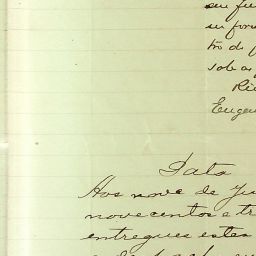 seu fu
in for
tro de
sob a
Rio
Eugen
Data
Aos nove de Ju
novecentos e tr
entregues estes